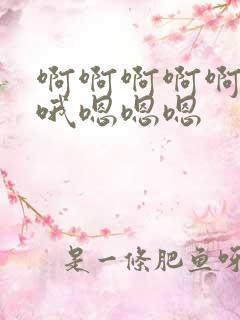 啊啊啊啊啊
哦嗯嗯嗯
是一條肥鱼呀